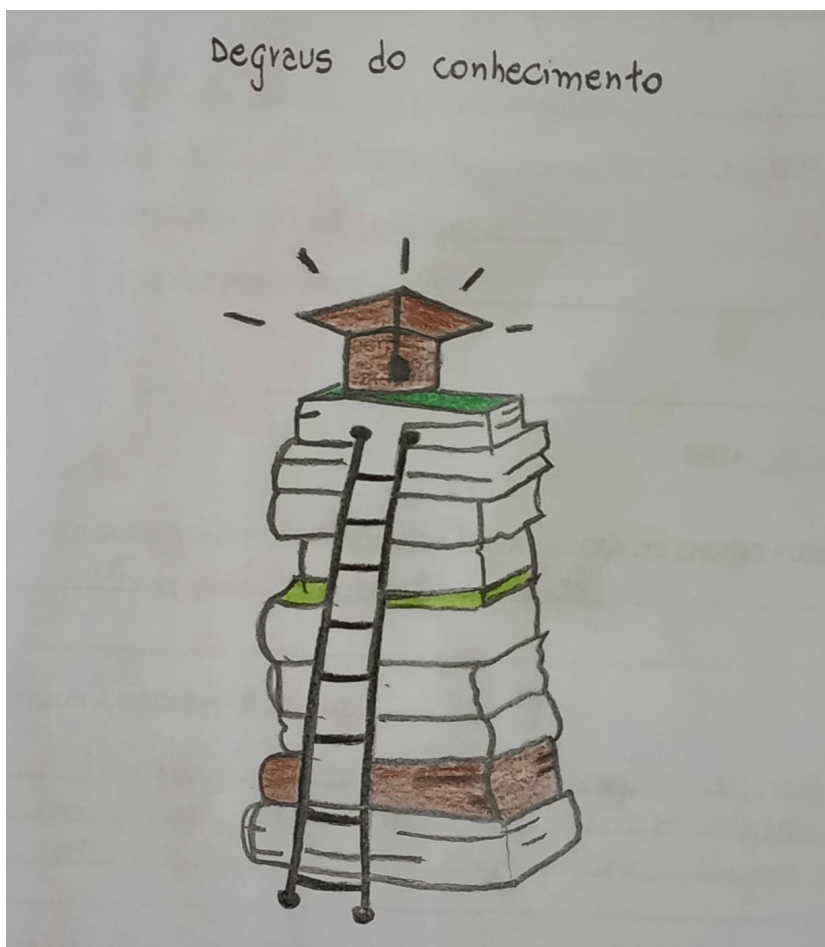 Degraus do conhecimento